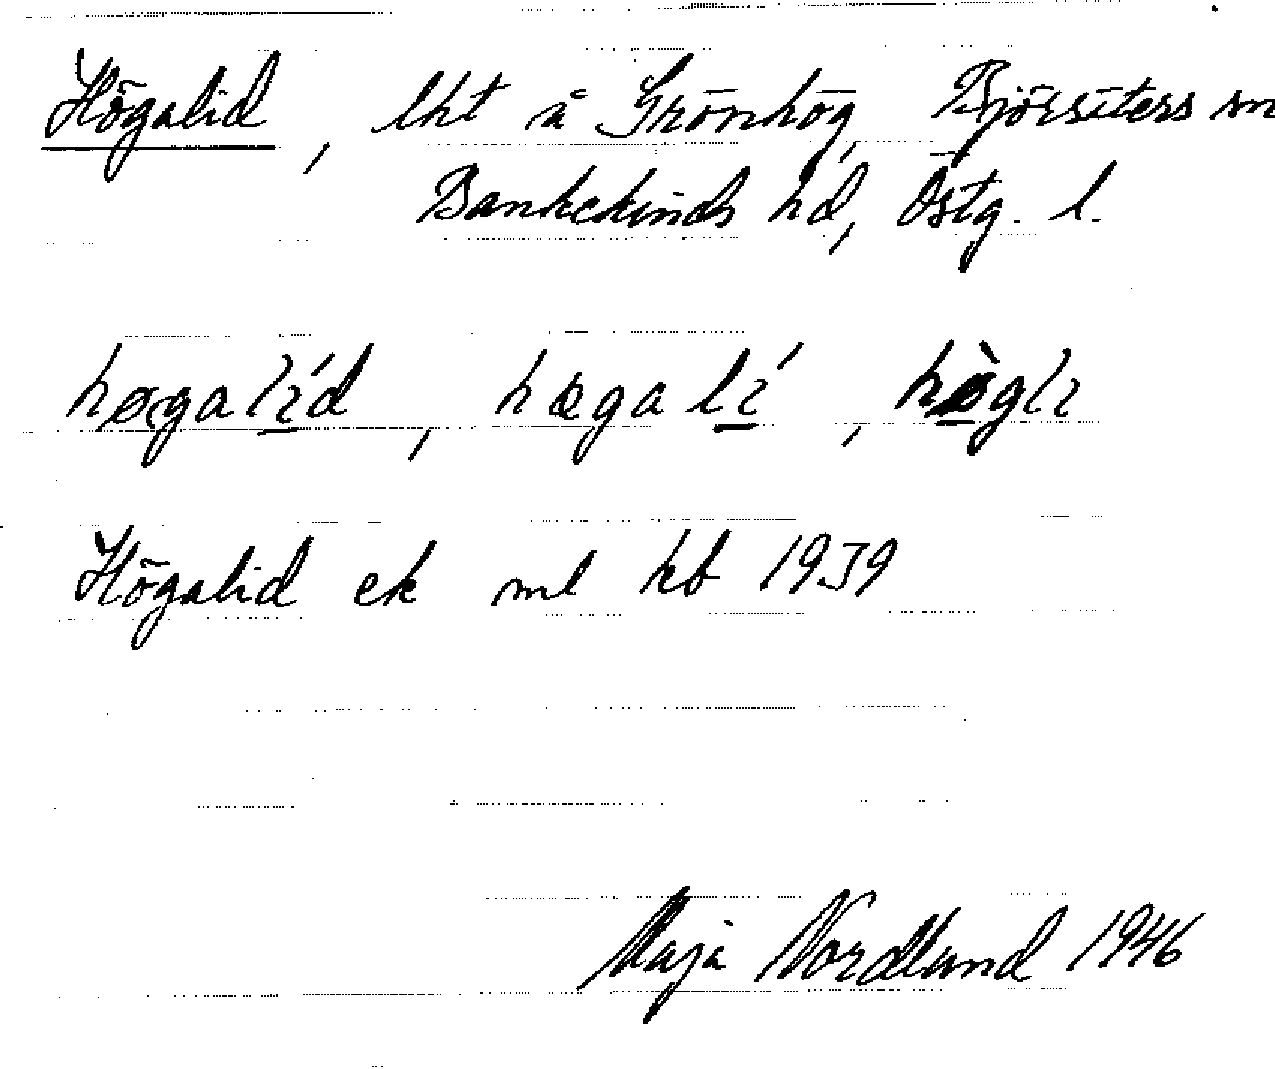 Högalid, lht å Grönhög, Björsäters sn
Bankekinds hd, Östg. l.
høgali̱´d, høgali̱´, hø̱̀gli
Högalid ek ml kb 1939
Maja Nordlund 1946